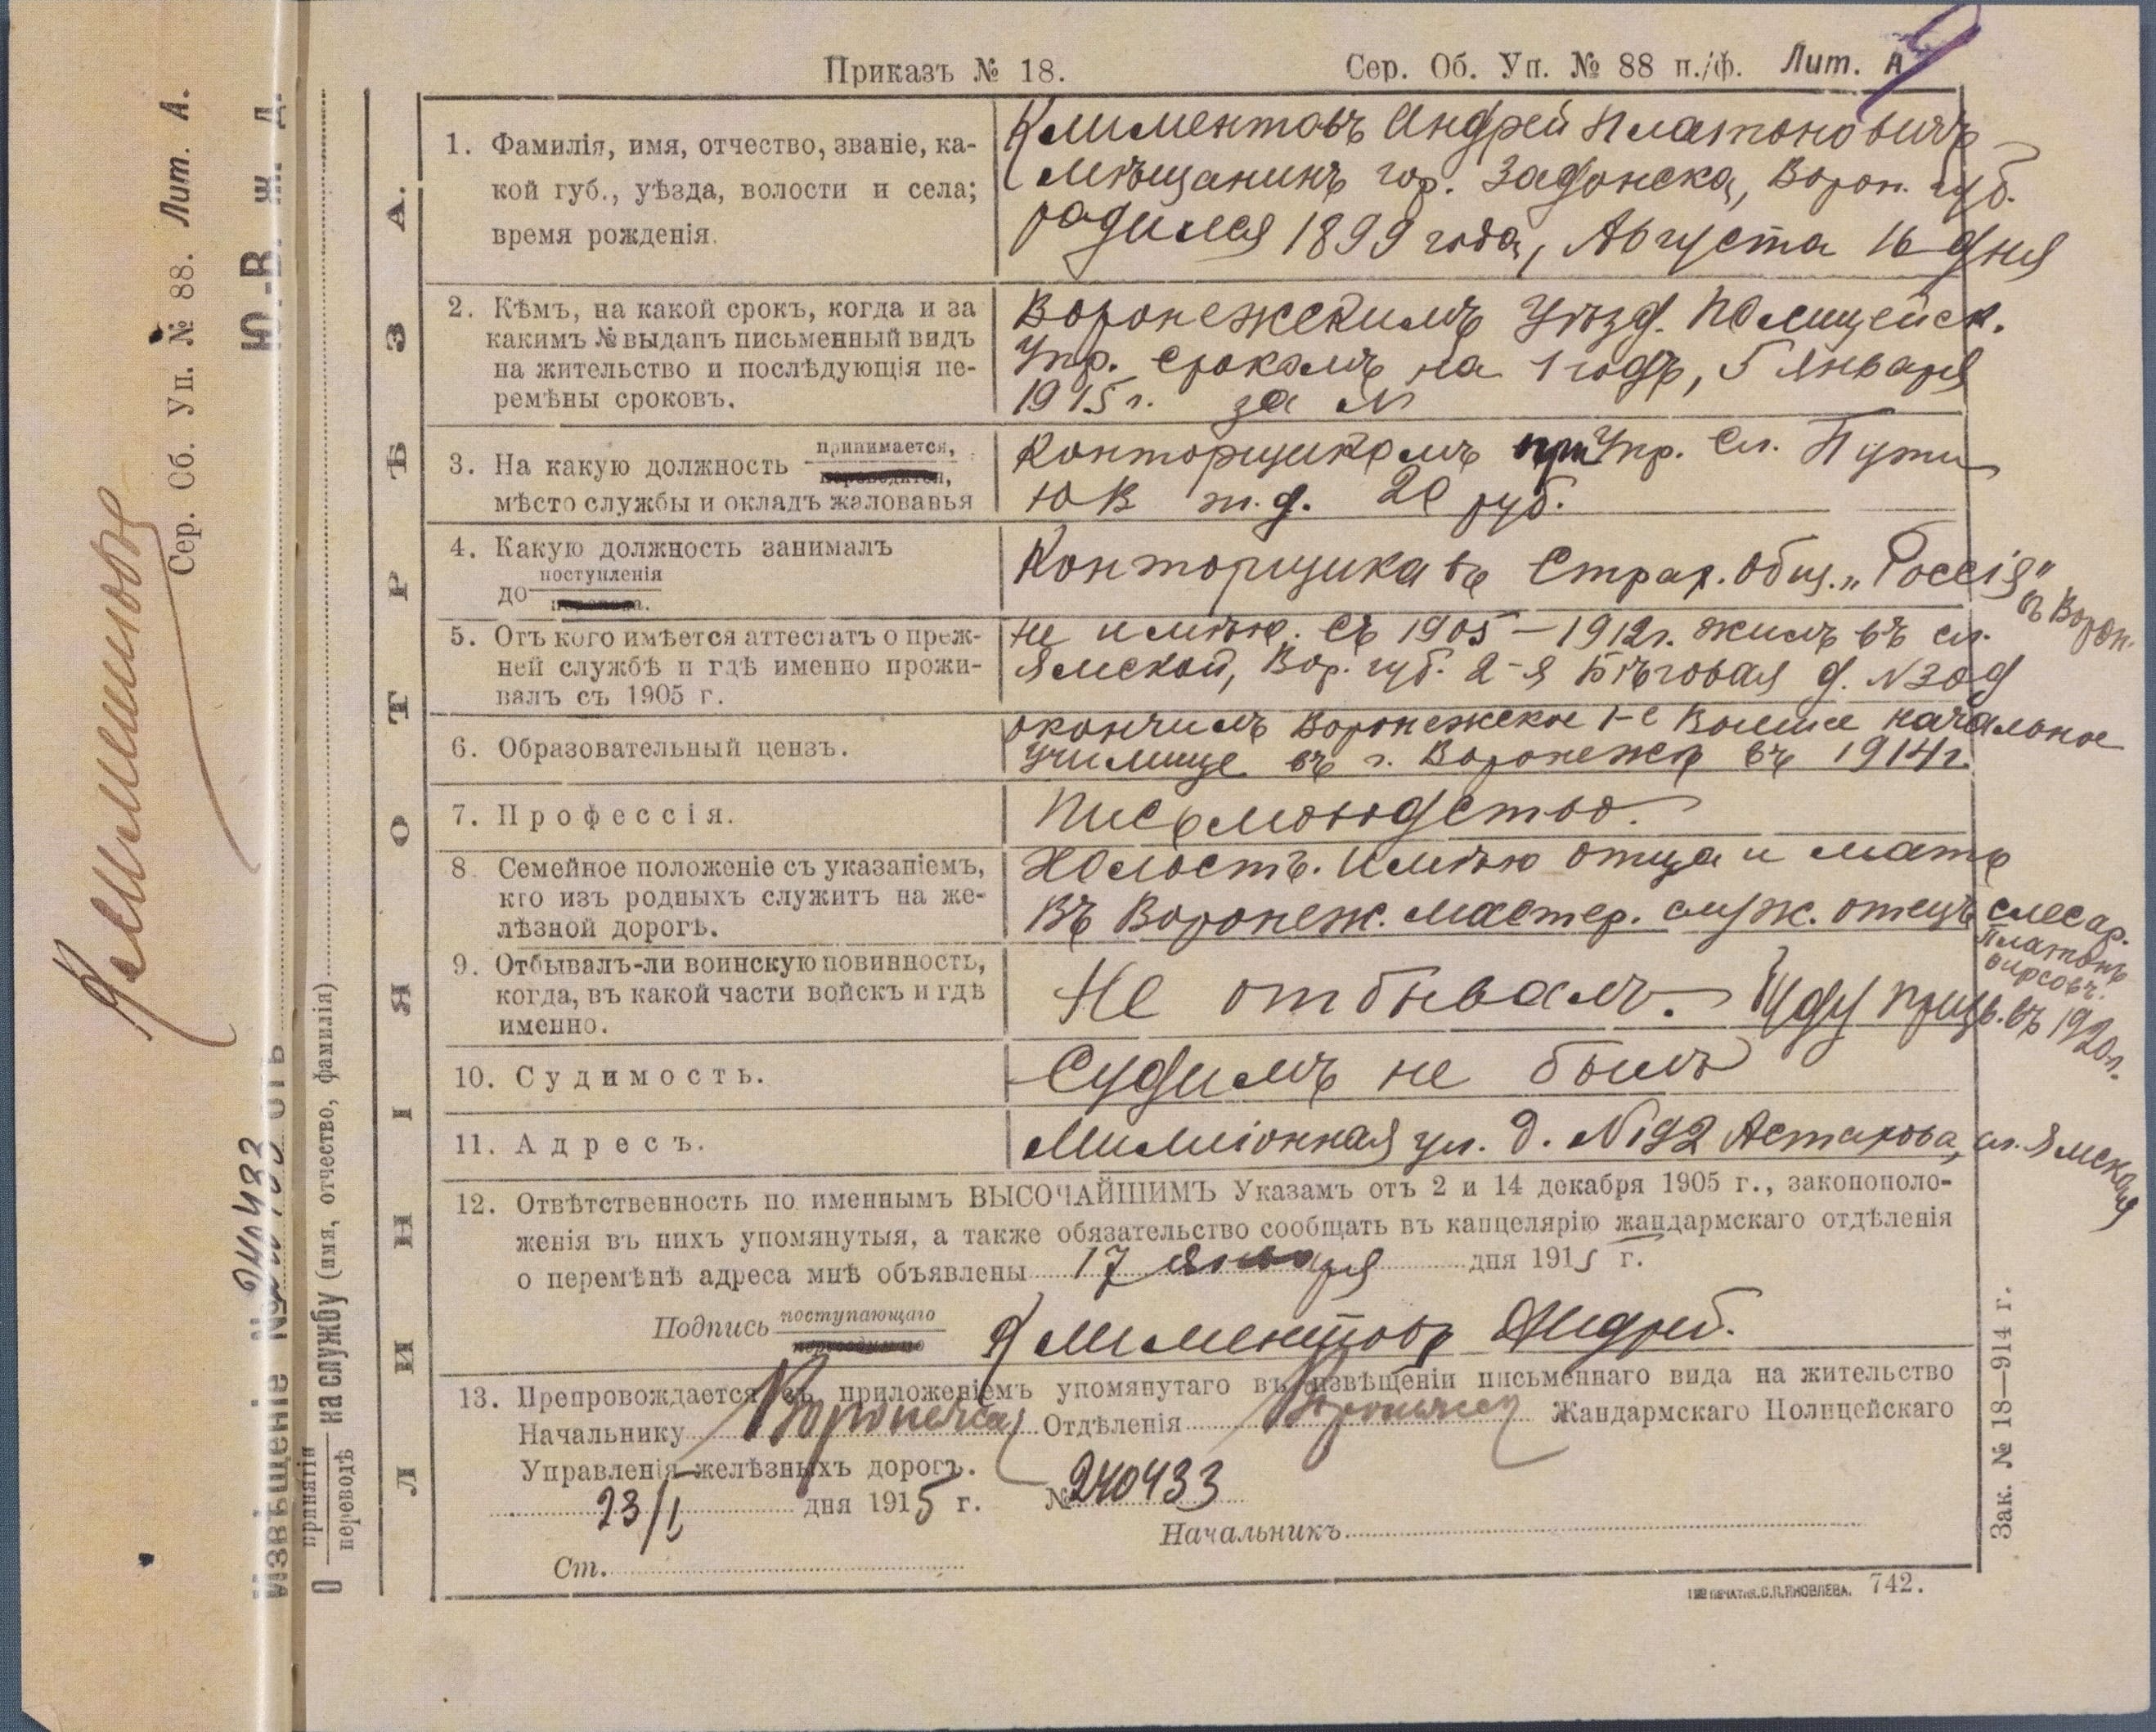 Климентовъ
Сер. Об. Уп. № 88. Лит. А.
Ю.-В. ж. д.
Извѣщеніе № 240433 отъ
О принятіи переводѣ на службу (имя, отчество, фамилія)
ЛИНІЯ ОТРѢЗА.
Приказъ № 18.
Сер. Об. Уп. № 88 п./ф. Лит. А
1. Фамилія, имя, отчество, званіе, ка-
кой губ., уѣзда, волости и села;
время рожденія.
Климентовъ Андрей Платоновичъ
мѣщанинъ гор. Задонска, Ворон. губ.
родился 1899 года, Августа 16 дня
2. Кѣмъ, на какой срокъ, когда и за
какимъ № выданъ письменный видъ
на жительство и послѣдующія пе-
ремѣны сроковъ.
Воронежскимъ Уѣзд. Полицейск.
Упр. срокомъ на 1 годъ, 5 января
1915 г. за №
3. На какую должность принимается,
переводится,
мѣсто службы и окладъ жалованья
Конторщикомъ при Упр. Сл. Пути
ЮВ ж.д. 20 руб.
4. Какую должность занималъ
до поступленія
Конторщика въ Страх. Общ. „Россія"
въ Ворон.
5. Отъ кого имѣется аттестатъ о преж-
ней службѣ и гдѣ именно прожи-
валъ съ 1905 г.
Не имѣю. Съ 1905–1912 г. жилъ въ сл.
Ямской, Вор. губ. 2-я Бѣговая д. №
6. Образовательный цензъ.
окончилъ Воронежское 1-е Высшее начальное
училище въ г. Воронежѣ въ 1914 г.
7. Профессія.
Письмоводство.
8. Семейное положеніе съ указаніемъ,
кто изъ родныхъ служитъ на же-
лѣзной дорогѣ.
Холостъ. Имѣю отца и мать
Въ Воронеж. мастер. служ. отецъ слесар.
Платонъ
Фирсовъ.
9. Отбывалъ-ли воинскую повинность,
когда, въ какой части войскъ и гдѣ
именно.
Не отбывалъ. Иду призыв. въ 1920 г.
10. Судимость.
Судимъ не былъ
11. Адресъ.
Милліонная ул. д. №192 Астахова, сл. Ямская
12. Отвѣтственность по именнымъ ВЫСОЧАЙШИМЪ Указамъ отъ 2 и 14 декабря 1905 г., законополо-
женія въ нихъ упомянутыя, а также обязательство сообщать въ канцелярію жандармскаго отдѣленія
о перемѣнѣ адреса мнѣ объявлены 17 января дня 1915 г.
Подпись поступающаго Климентовъ Андрей.
13. Препровождается съ приложеніемъ упомянутаго въ извѣщеніи письменнаго вида на жительство
Начальнику Воронежск Отдѣленія Жандармскаго Полицейскаго
Управленія желѣзныхъ дорогъ.
23/I дня 1915 г. № 240433
Начальникъ
Ст.
Зак. № 18—914 г.
ПЕЧАТНЯ С.П.ЯКОВЛЕВА. 742.